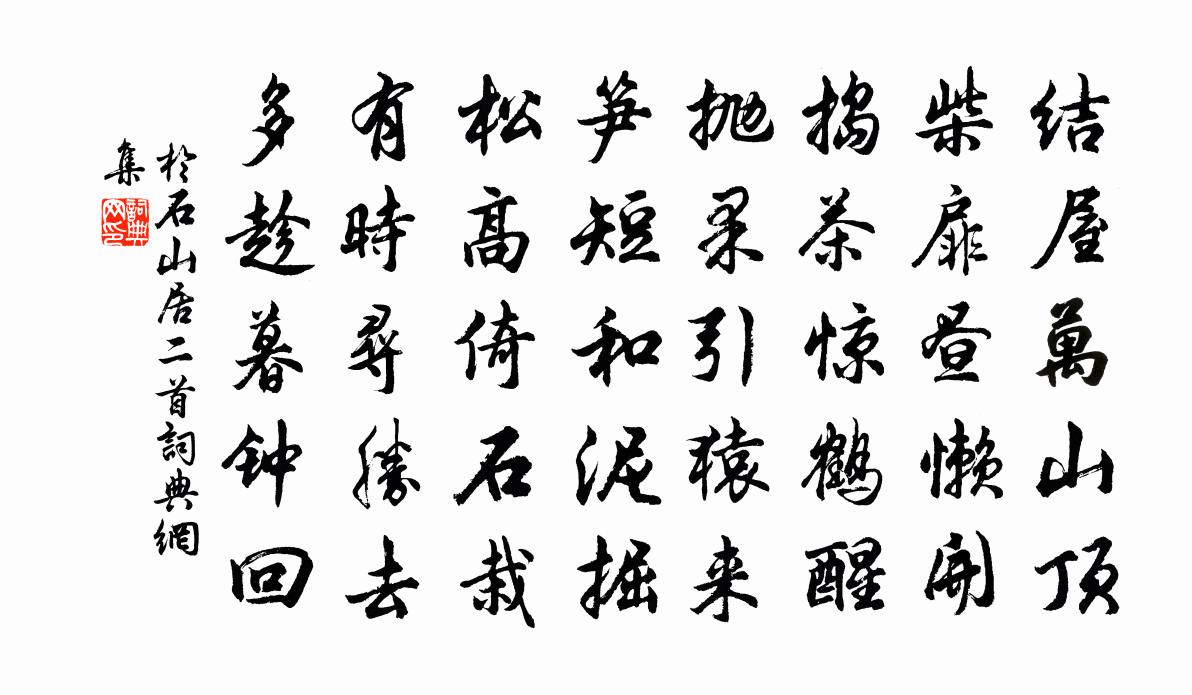 结屋萬山顶
柴扉昼懒開
捣茶惊鹤醒
抛果引猿来
笋短和泥掘
松高倚石栽
有時尋勝去
多趁暮钟回
於石山居二首詞典網
集
詞典
网印